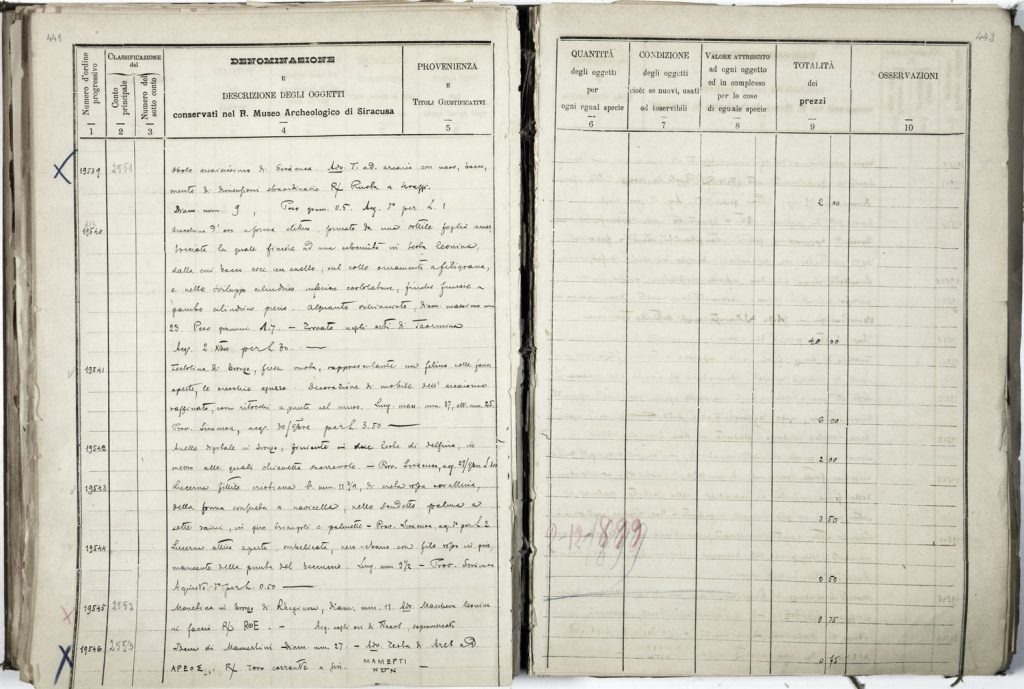 441
Numero d'ordine progressivo
CLASSIFICAZIONE
del
Conto principale
Numero del sotto conto
DENOMINAZIONE
E
DESCRIZIONE DEGLI OGGETTI
conservati nel R. Museo Archeologico di Siracusa
PROVENIENZA
E
TITOLI GIUSTIFICATIVI
1 2 3 4 5
19539 2551 Obolo arcaicissimo di Siracusa. Adv. T. a D. arcaica con naso,
mento di dimensioni straordinarie R/ Ruota a 4 raggi.
Diam. mm. 9, Peso gram. 0.5. Acq. per L. 1
19540 Orecchino d'oro a forma elittica, formato da una sottile foglia
la quale finisce ad una estremità in testa leonina,
dalla cui bocca esce un anello, sul collo ornamenti a filigrana,
e nello sviluppo cilindrico inferiore
gambo cilindrico pieno. Alquanto schiacciato, diam. massimo mm
23. Peso grammi 1.7. — Trovato negli orti di Taormina
Acq. 2 9bre per L 30. —
19541 Testolina di bronzo, fusa vuota, rappresentante un felino colle fauci
aperte, le orecchie aguzze. Decorazione di mobile dell'arcaismo
raffinato, con ritocchi a punta nel muso. Lung. mass. mm. 37, alt. mm. 25.
Prov. Siracusa, acq. 30/9bre per L 3.50 —
19542 Anello digitale in bronzo, finiente in due teste di delfino, in
mezzo alle quali chiavetta scorrevole. — Prov. Siracusa, acq.
19543 Lucerna fittile cristiana di creta rossa cavallina,
della forma consueta a navicella, nello scudetto palma a
sette rami, in giro triangoli e palmette — Prov. Siracusa, acq. per L 2
19544 Lucerna attica aperta, ombelicata, nero-ebano con filo rosso in giro,
mancante della punta del beccuccio. Lung. mm. 92 — Prov. Siracusa
Acquisto per L. 0.50 —
19545 2552 Monetina in bronzo di Rhegium, diam. mm. 11. Adv. Maschera leonina
in faccia R/ RΘE. — Acq. sopramercato
19546 2553 Idem di Mamertini — Diam. mm. 27. — Adv. Testa di Ares a D.
ΑΡΕΟΣ, R/ Toro corrente a sin. ΜΑΜΕΡΤΙ
ΝΩΝ —
443
QUANTITÀ
degli oggetti
per
ogni egual specie
CONDIZIONE
degli oggetti
cioè: se nuovi, usati
od inservibili
VALORE ATTRIBUITO
ad ogni oggetto
ed in complesso
per le cose
di eguale specie
TOTALITÀ
dei
prezzi
OSSERVAZIONI
6 7 8 9 10
2 00
40 00
6 00
2 00
3 50
2-12-1899
0 50
0 75
0 75